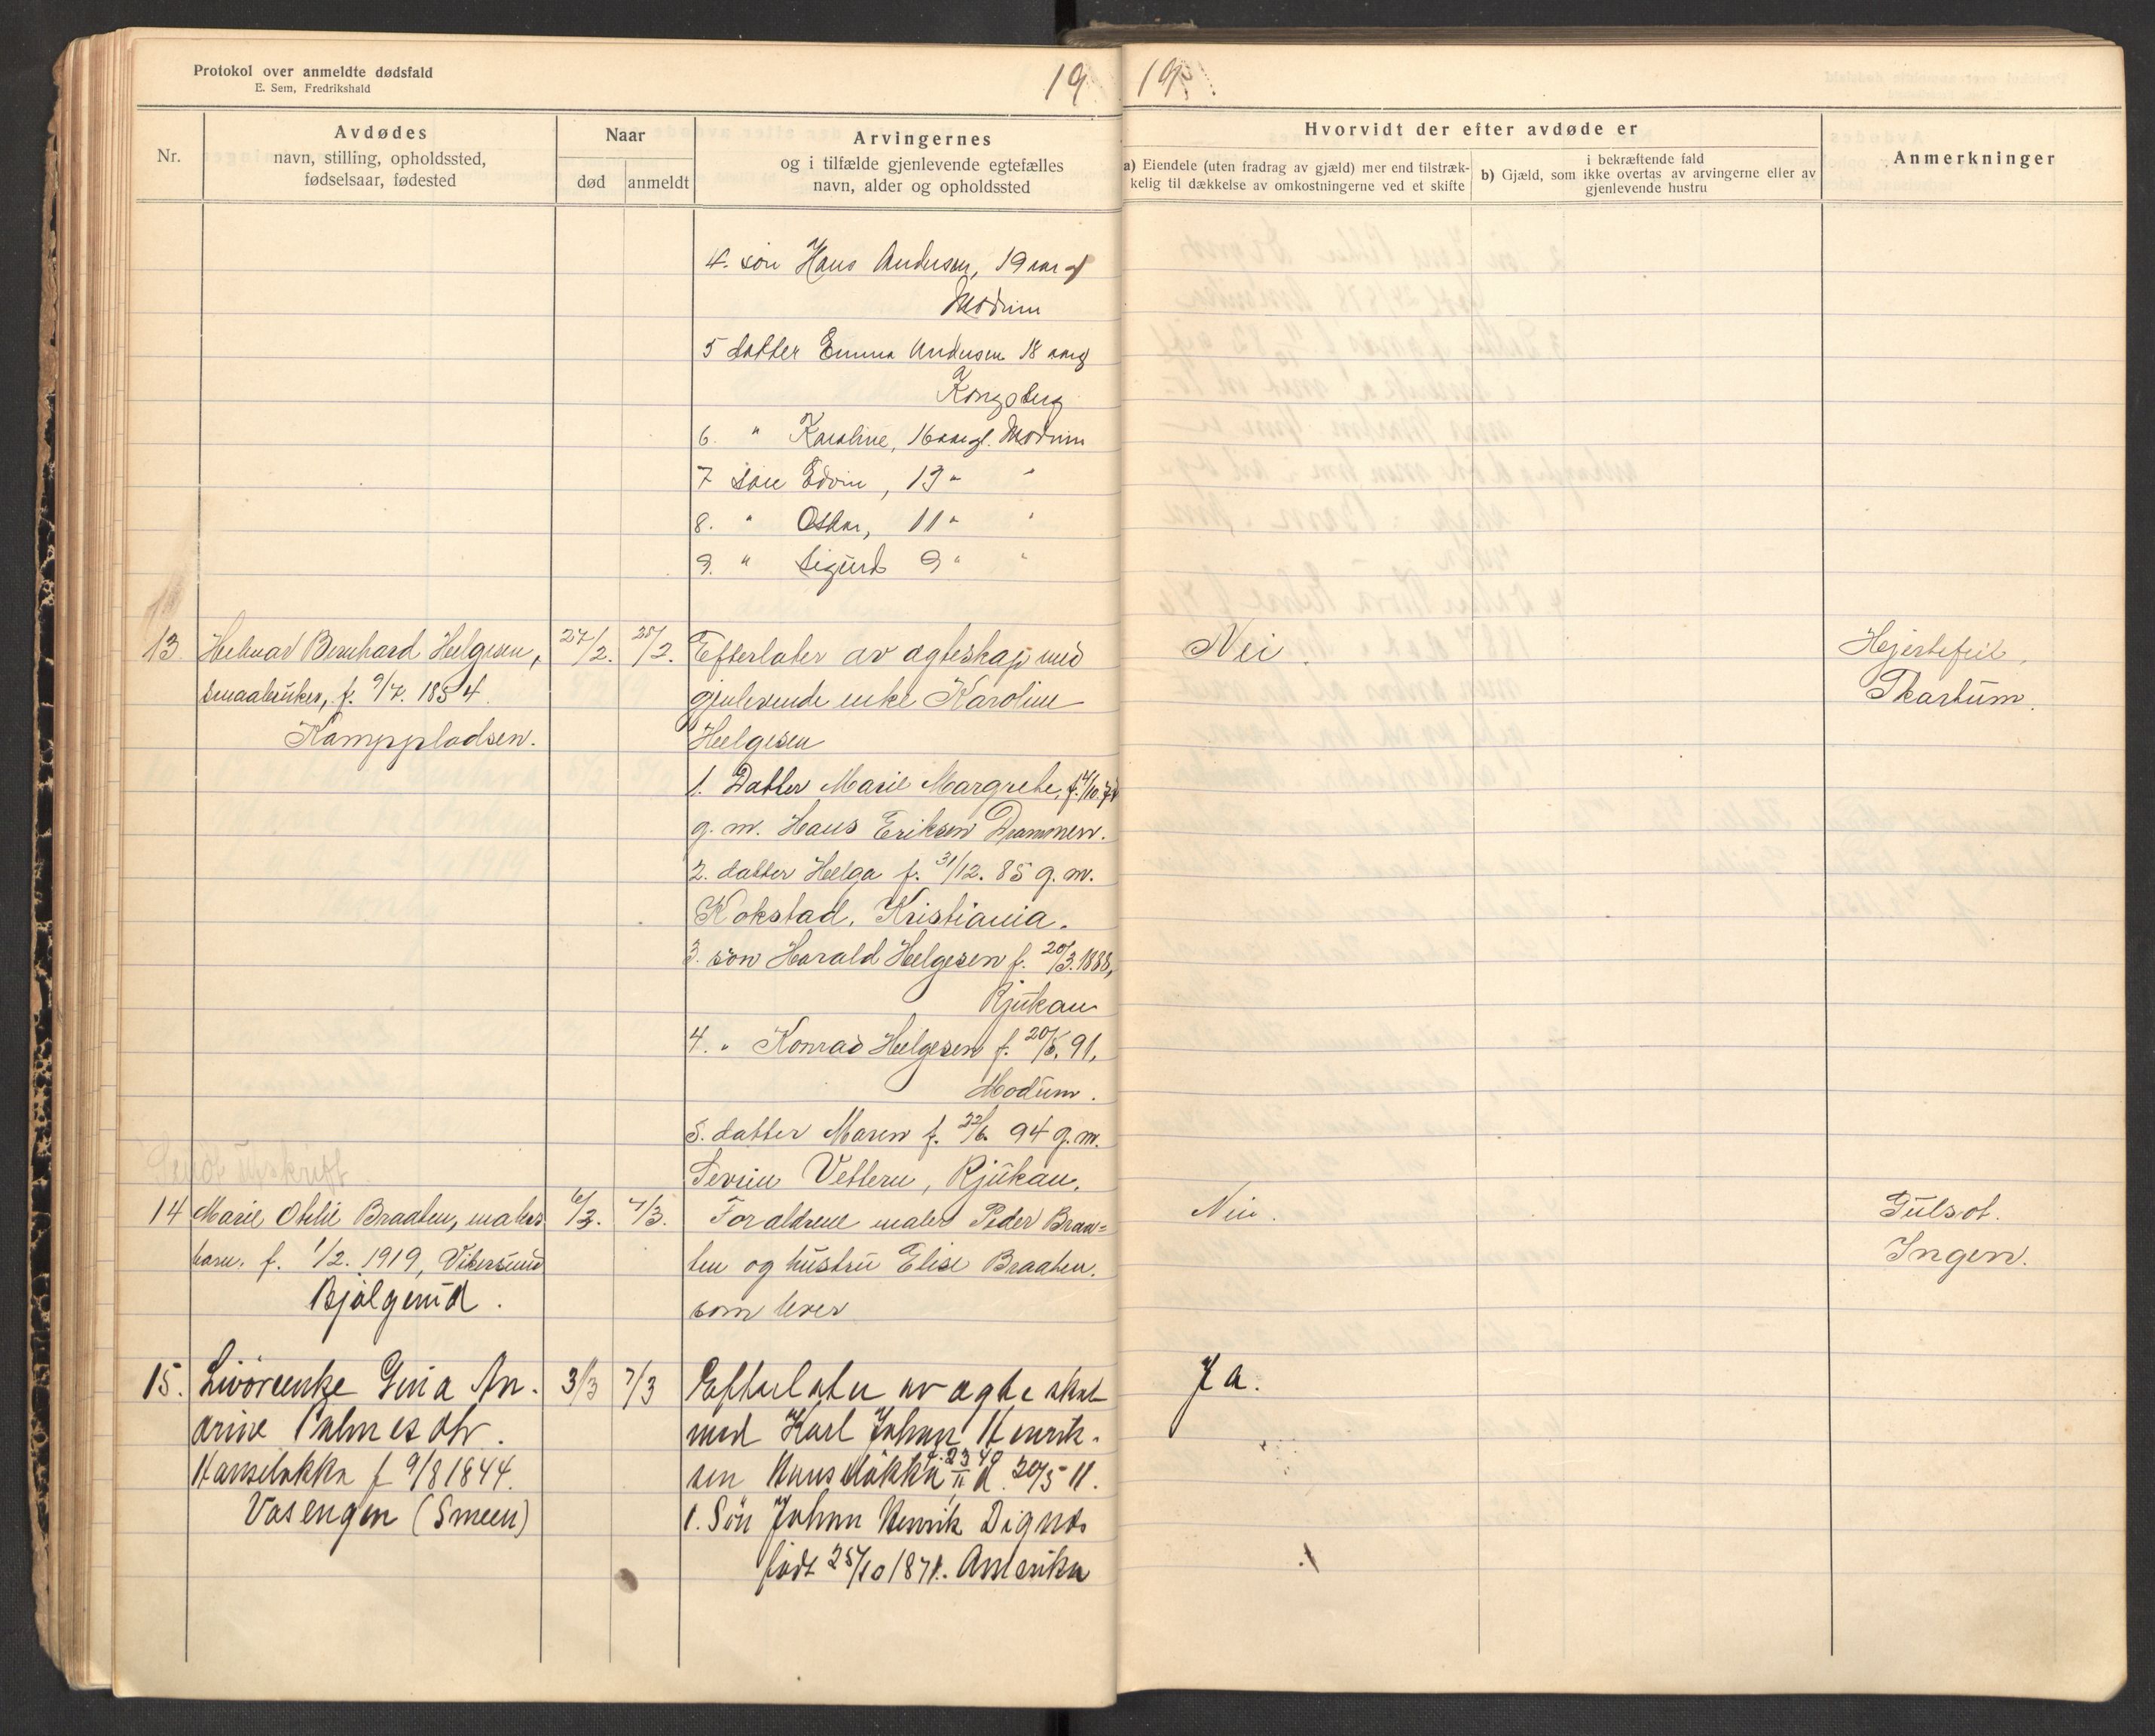 Protokol over anmeldte dødsfald
E. Sem, Fredrikshald
19
19
Nr.
Avdødes
navn, stilling, opholdssted,
fødselsaar, fødested
Naar
død
anmeldt
Arvingernes
og i tilfælde gjenlevende egtefælles
navn, alder og opholdssted
Hvorvidt der efter avdøde er
a) Eiendele (uten fradrag av gjæld) mer end tilstræk-
kelig til dækkelse av omkostningerne ved et skifte
i bekræftende fald
b) Gjæld, som ikke overtas av arvingerne eller av
gjenlevende hustru
Anmerkninger
4. søn Hans Andersen, 19 aar gl
Modum
5 datter Emma Andersen 18 aar gl
Kongsberg
6. " Karoline, 16 aar gl. Modum
7 søn Edvin, 13 " "
8. " Oskar, 11 " "
9. " Sigurd 9 " "
13. Helmar Bernhard Helgesen, 27/2. 28/2. Efterlater av egteskap med Nei. Hjertefeil,
smaabruker, f. 9/7. 1854. gjenlevende enke Karoline
Kamppladsen. Helgesen
1. Datter Marie Margrethe,
g. m. Hans Eriksen Drammen.
2. datter Helga f. 31/12. 85 g. m.
Kokstad, Kristiania.
3. søn Harald Helgesen f. 20/3. 1888,
Rjukan
4. " Konrad Helgesen f. 20/5. 91,
Modum.
5. datter Maren f. 22/6. 94 g. m.
Sevrin Vetlern, Rjukan.
utskrift
14 Marie Otelie Braaten, malers 6/3. 7/3. Forældrene maler Peder Braa= Nei. Gulsot.
barn. f. 1/2. 1919, Vikersund ten og hustru Elise Braaten. Ingen.
Bjølgerud. som lever
15. Livøreenke Gina An- 3/3 7/3 Efterlater av ægteskab Ja.
drine Palmesdtr. med Karl Johan Henrik-
Hanseløkka f 9/8 1844. sen Hanseløkka d. 20/5 11.
Vasengen (Smeen) 1. Søn Johan Henrik Dignes
født 25/10 1871. Amerika